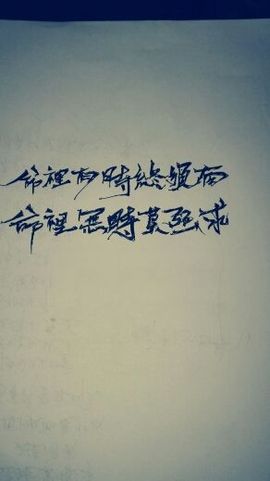 命裡有時終須有
命裡無時莫强求